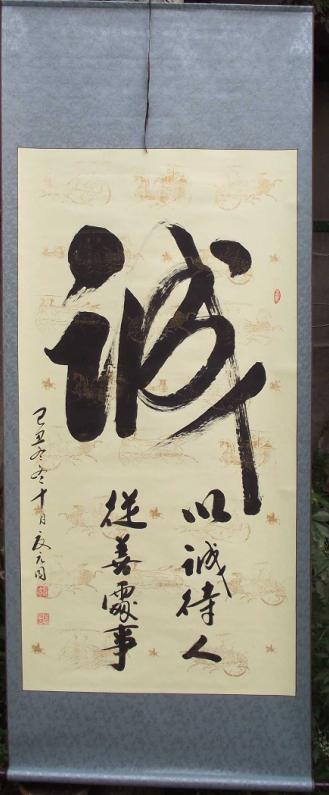 誠
以诚待人
從善處事
己丑年冬十月